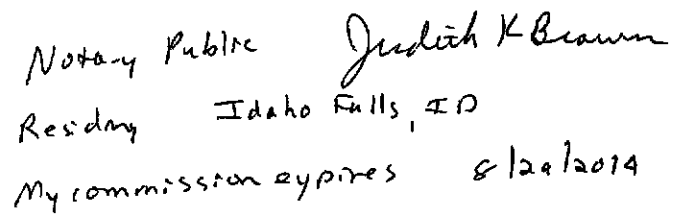 Notary Public Judith K Brown
Residing Idaho Falls, ID
My commission expires 8/29/2014